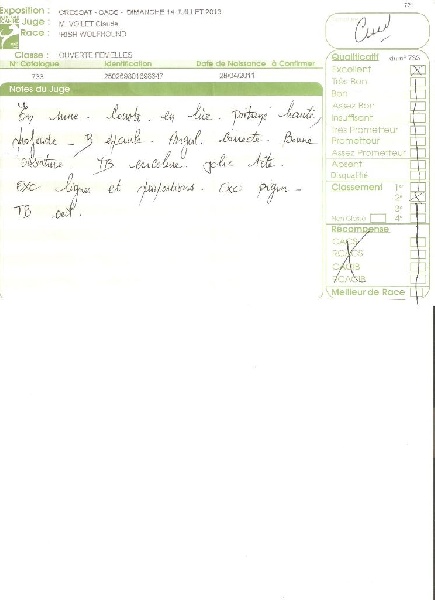 Exposition : CROCQAT - CACS - DIMANCHE 14 JUILLET 2013
Juge : M. VOILET Claude
Race : IRISH WOLFHOUND
Classe : OUVERTE FEMELLES
N° Catalogue Identification Date de Naissance à Confirmer
733 250269801698347 26/04/2011
Notes du Juge
En lice
profonde - B épaule Angul. correcte. Bonne
ossature TB encolure jolie tête.
Exc lignes et proportions. Exc pigm -
TB oeil.
Exc
Qualificatif du n° 733
Excellent X
Très Bon
Bon
Assez Bon
Insuffisant
Très Prometteur
Prometteur
Assez Prometteur
Absent
Disqualifié
Classement 1er
2e X
3e
Non Classé 4e
Récompense
CACS
RCACS
CACIB
RCACIB
Meilleur de Race